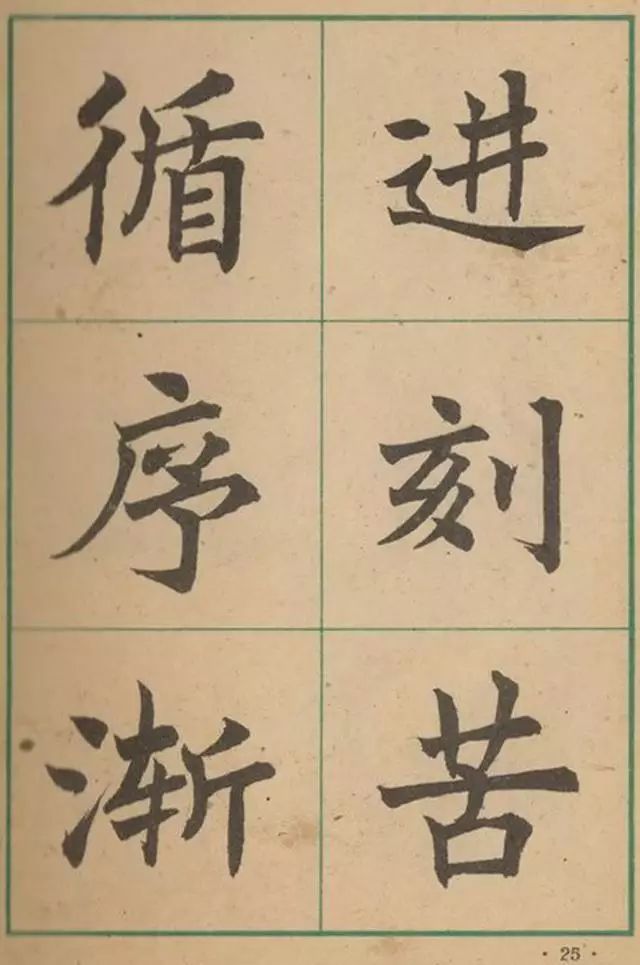 循序渐
进刻苦
· 25 ·